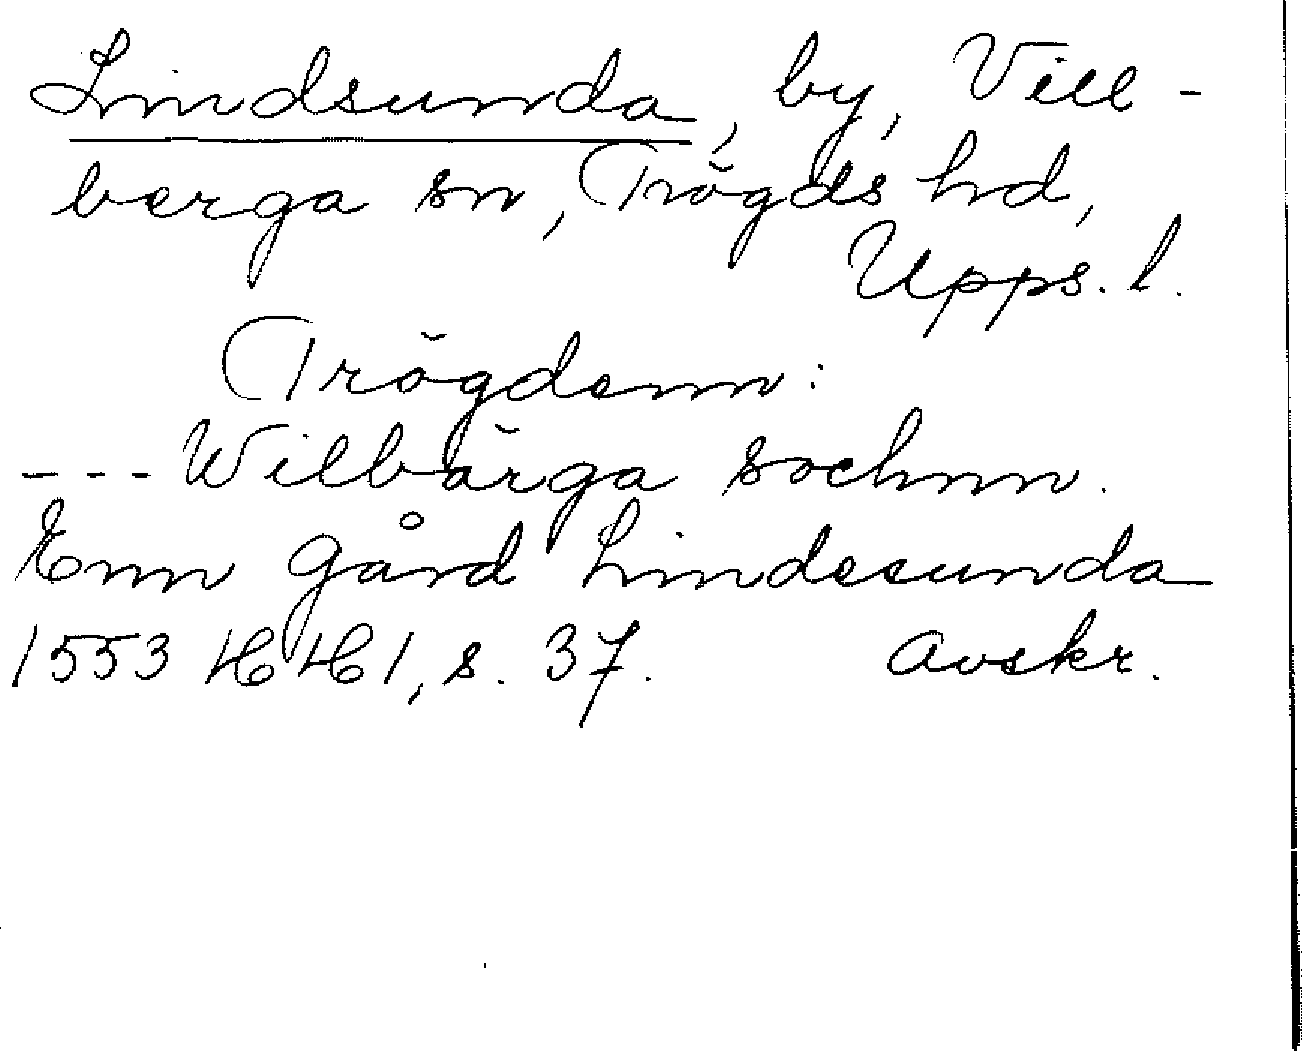 Lindsunda, by, Vill-
berga sn, Trögds hd,
Upps. l.
Trögdenn:
--- Wilbärga sochnn.
Enn gård Lindesunda
1553 HH 1, s. 37. Avskr.